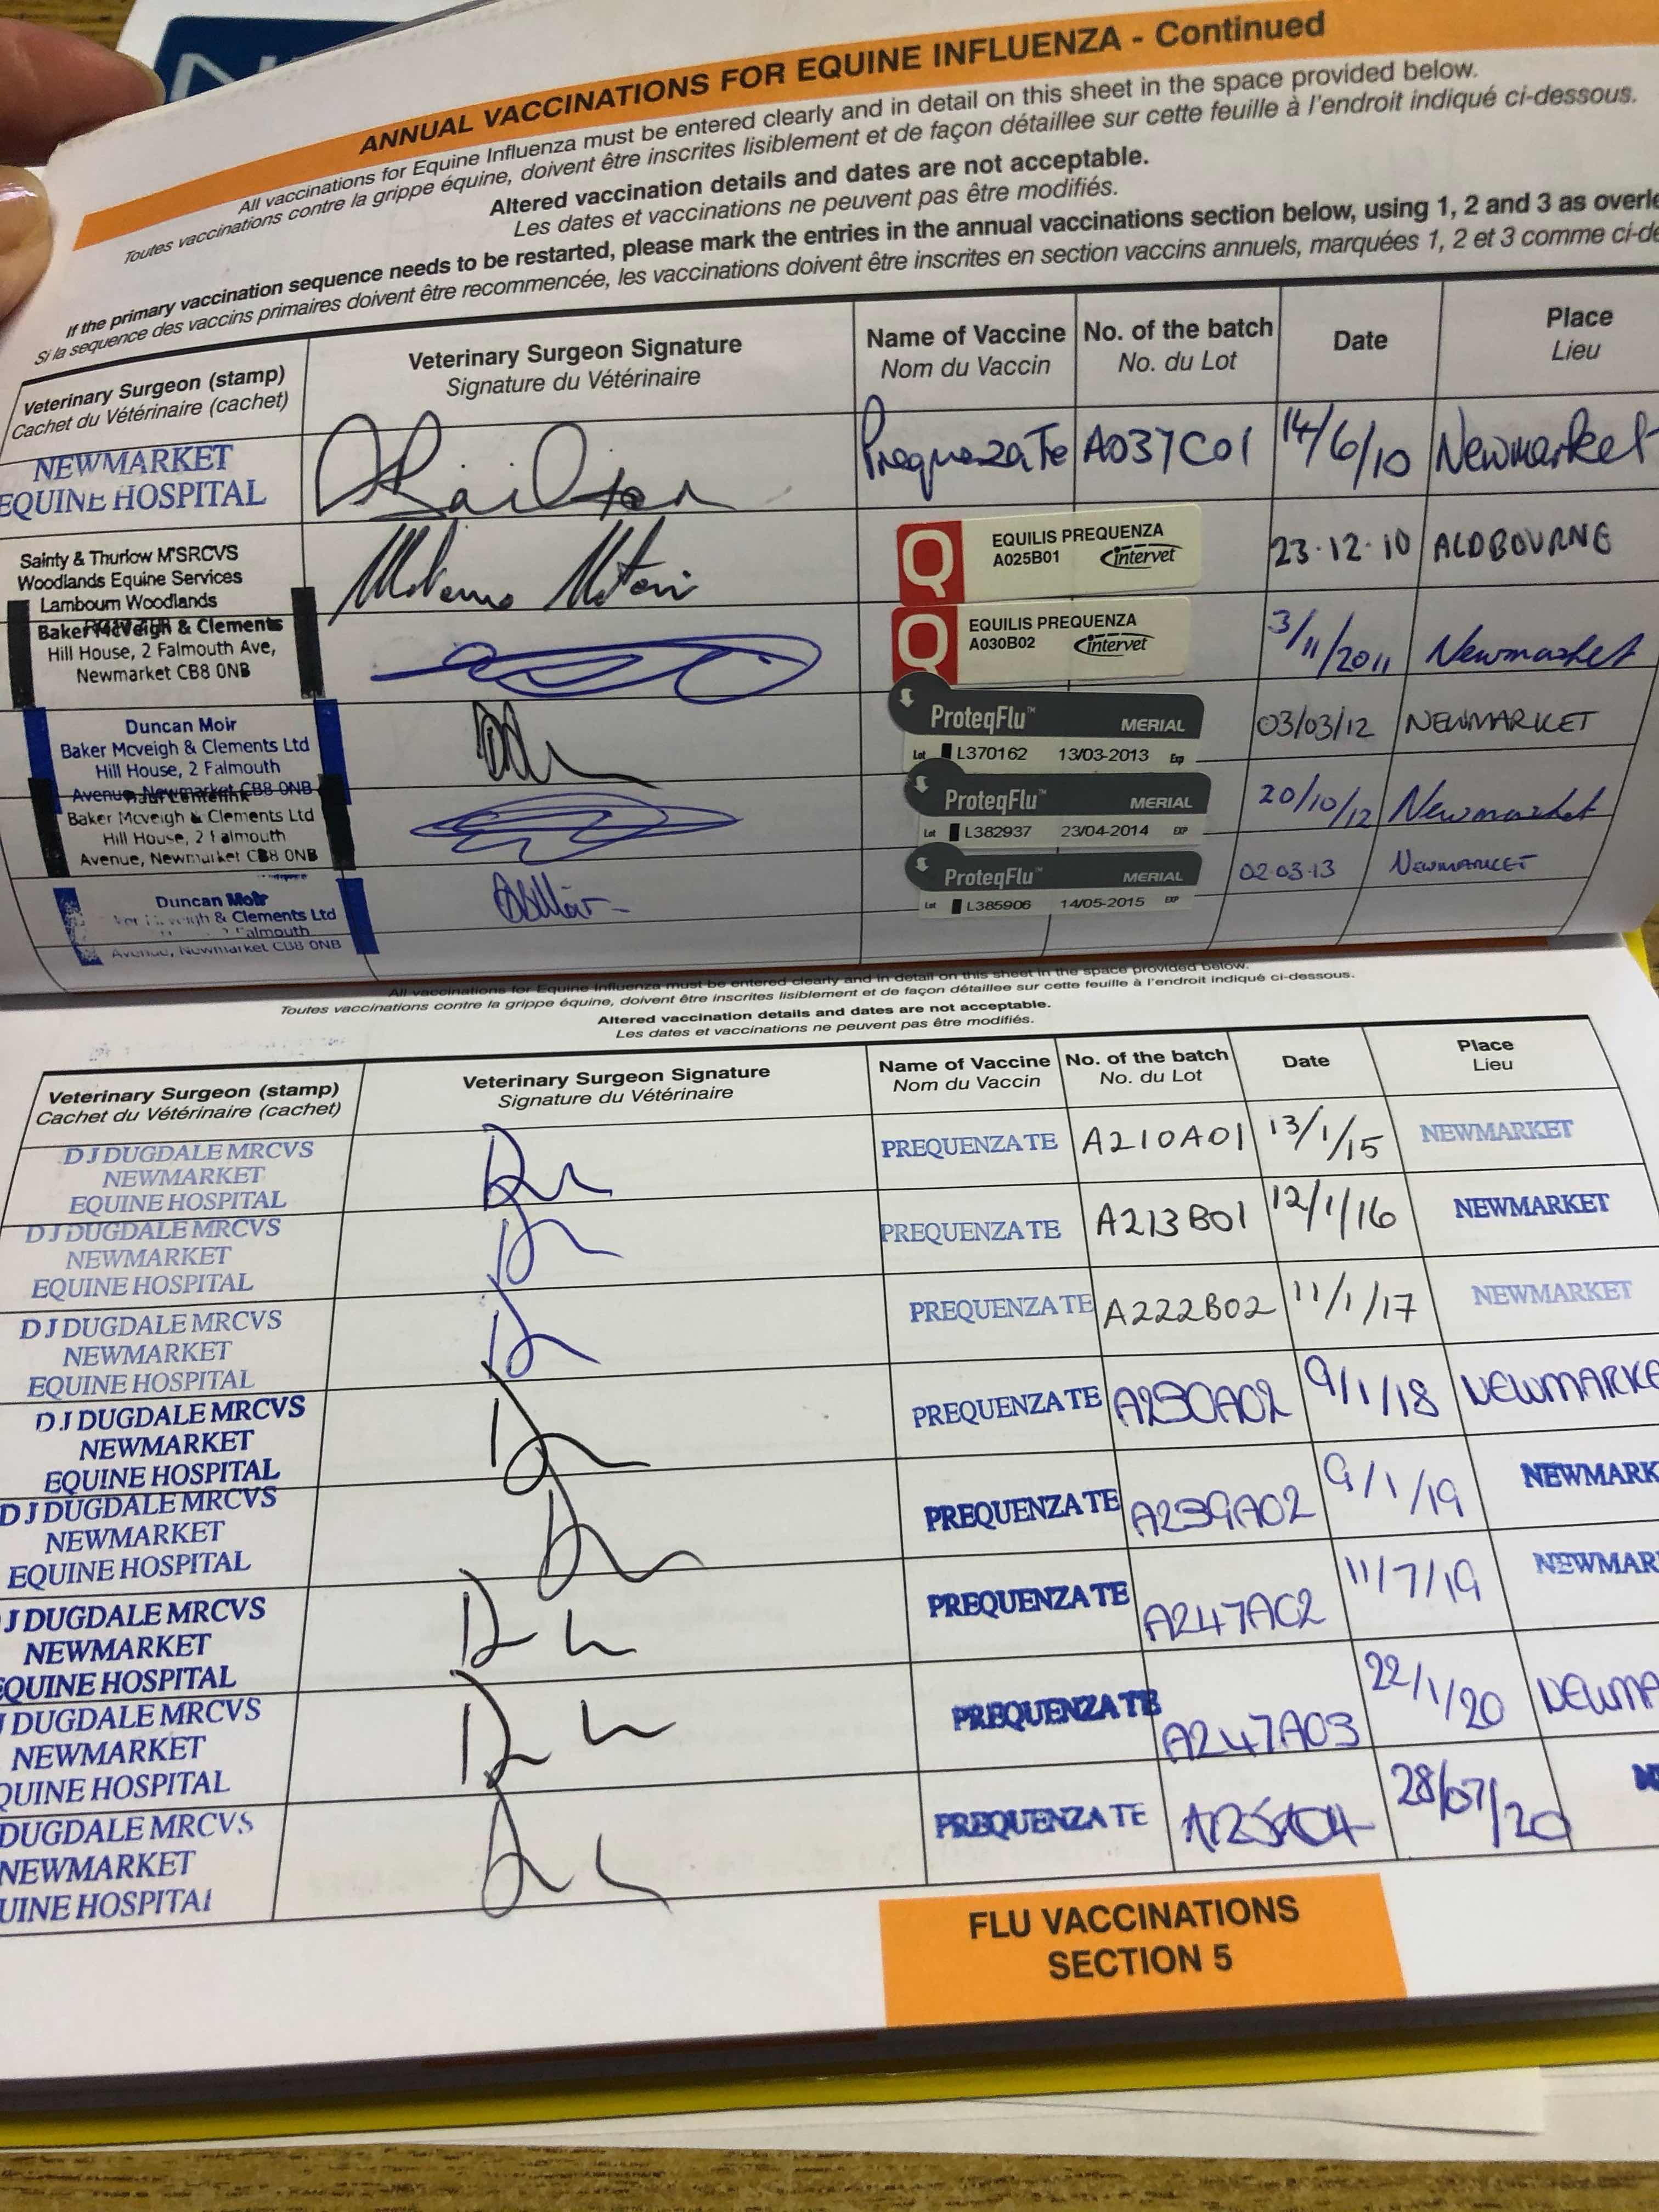 ANNUAL VACCINATIONS FOR EQUINE INFLUENZA - Continued
All vaccinations for Equine Influenza must be entered clearly and in detail on this sheet in the space provided below.
Toutes vaccinations contre la grippe équine, doivent être inscrites lisiblement et de façon détaillee sur cette feuille à l'endroit indiqué ci-dessous.
Altered vaccination details and dates are not acceptable.
Les dates et vaccinations ne peuvent pas être modifiés.
If the primary vaccination sequence needs to be restarted, please mark the entries in the annual vaccinations section below, using 1, 2 and 3 as
Si la sequence des vaccins primaires doivent être recommencée, les vaccinations doivent être inscrites en section vaccins annuels, marquées 1, 2 et 3 comme
Veterinary Surgeon (stamp) Veterinary Surgeon Signature Name of Vaccine No. of the batch Date Place
Cachet du Vétérinaire (cachet) Signature du Vétérinaire Nom du Vaccin No. du Lot Lieu
NEWMARKET
EQUINE HOSPITAL
PrequenzaTe A037C01 14/6/10 Newmarket
Sainty & Thurlow M'SRCVS
Woodlands Equine Services
Lambourn Woodlands
EQUILIS PREQUENZA
A025B01 intervet
23.12.10 ALDBOURNE
Baker McVeigh & Clements
Hill House, 2 Falmouth Ave,
Newmarket CB8 0NB
EQUILIS PREQUENZA
A030B02 intervet
3/11/2011 Newmarket
Duncan Moir
Baker Mcveigh & Clements Ltd
Hill House, 2 Falmouth
Avenue, Newmarket CB8 0NB
ProteqFlu™ MERIAL
Lot L370162 13/03/2013 Exp
03/03/12 NEWMARKET
Baker Mcveigh & Clements Ltd
Hill House, 2 Falmouth
Avenue, Newmarket CB8 0NB
ProteqFlu™ MERIAL
Lot L382937 23/04/2014 EXP
20/10/12 Newmarket
Duncan Moir
& Clements Ltd
2 Falmouth
Avenue, Newmarket CB8 0NB
ProteqFlu™ MERIAL
Lot L385906 14/05-2015 EXP
02.03.13 NEWMARKET
All vaccinations for Equine Influenza must be entered clearly and in detail on this sheet in the space provided below.
Toutes vaccinations contre la grippe équine, doivent être inscrites lisiblement et de façon détaillee sur cette feuille à l'endroit indiqué ci-dessous.
Altered vaccination details and dates are not acceptable.
Les dates et vaccinations ne peuvent pas être modifiés.
Veterinary Surgeon (stamp) Veterinary Surgeon Signature Name of Vaccine No. of the batch Date Place
Cachet du Vétérinaire (cachet) Signature du Vétérinaire Nom du Vaccin No. du Lot Lieu
D J DUGDALE MRCVS
NEWMARKET
EQUINE HOSPITAL
PREQUENZA TE A210A01 13/1/15 NEWMARKET
D J DUGDALE MRCVS
NEWMARKET
EQUINE HOSPITAL
PREQUENZA TE A213B01 12/1/16 NEWMARKET
D J DUGDALE MRCVS
NEWMARKET
EQUINE HOSPITAL
PREQUENZA TE A222B02 11/1/17 NEWMARKET
D J DUGDALE MRCVS
NEWMARKET
EQUINE HOSPITAL
PREQUENZA TE A230A02 9/1/18 NEWMARKE
D J DUGDALE MRCVS
NEWMARKET
EQUINE HOSPITAL
PREQUENZA TE A239A02 9/1/19 NEWMARK
J DUGDALE MRCVS
NEWMARKET
EQUINE HOSPITAL
PREQUENZA TE A247A02 11/7/19 NEWMAR
J DUGDALE MRCVS
NEWMARKET
QUINE HOSPITAL
PREQUENZA TE A247A03 22/1/20 NEWMA
DUGDALE MRCVS
NEWMARKET
UINE HOSPITAL
PREQUENZA TE 28/07/20
FLU VACCINATIONS
SECTION 5